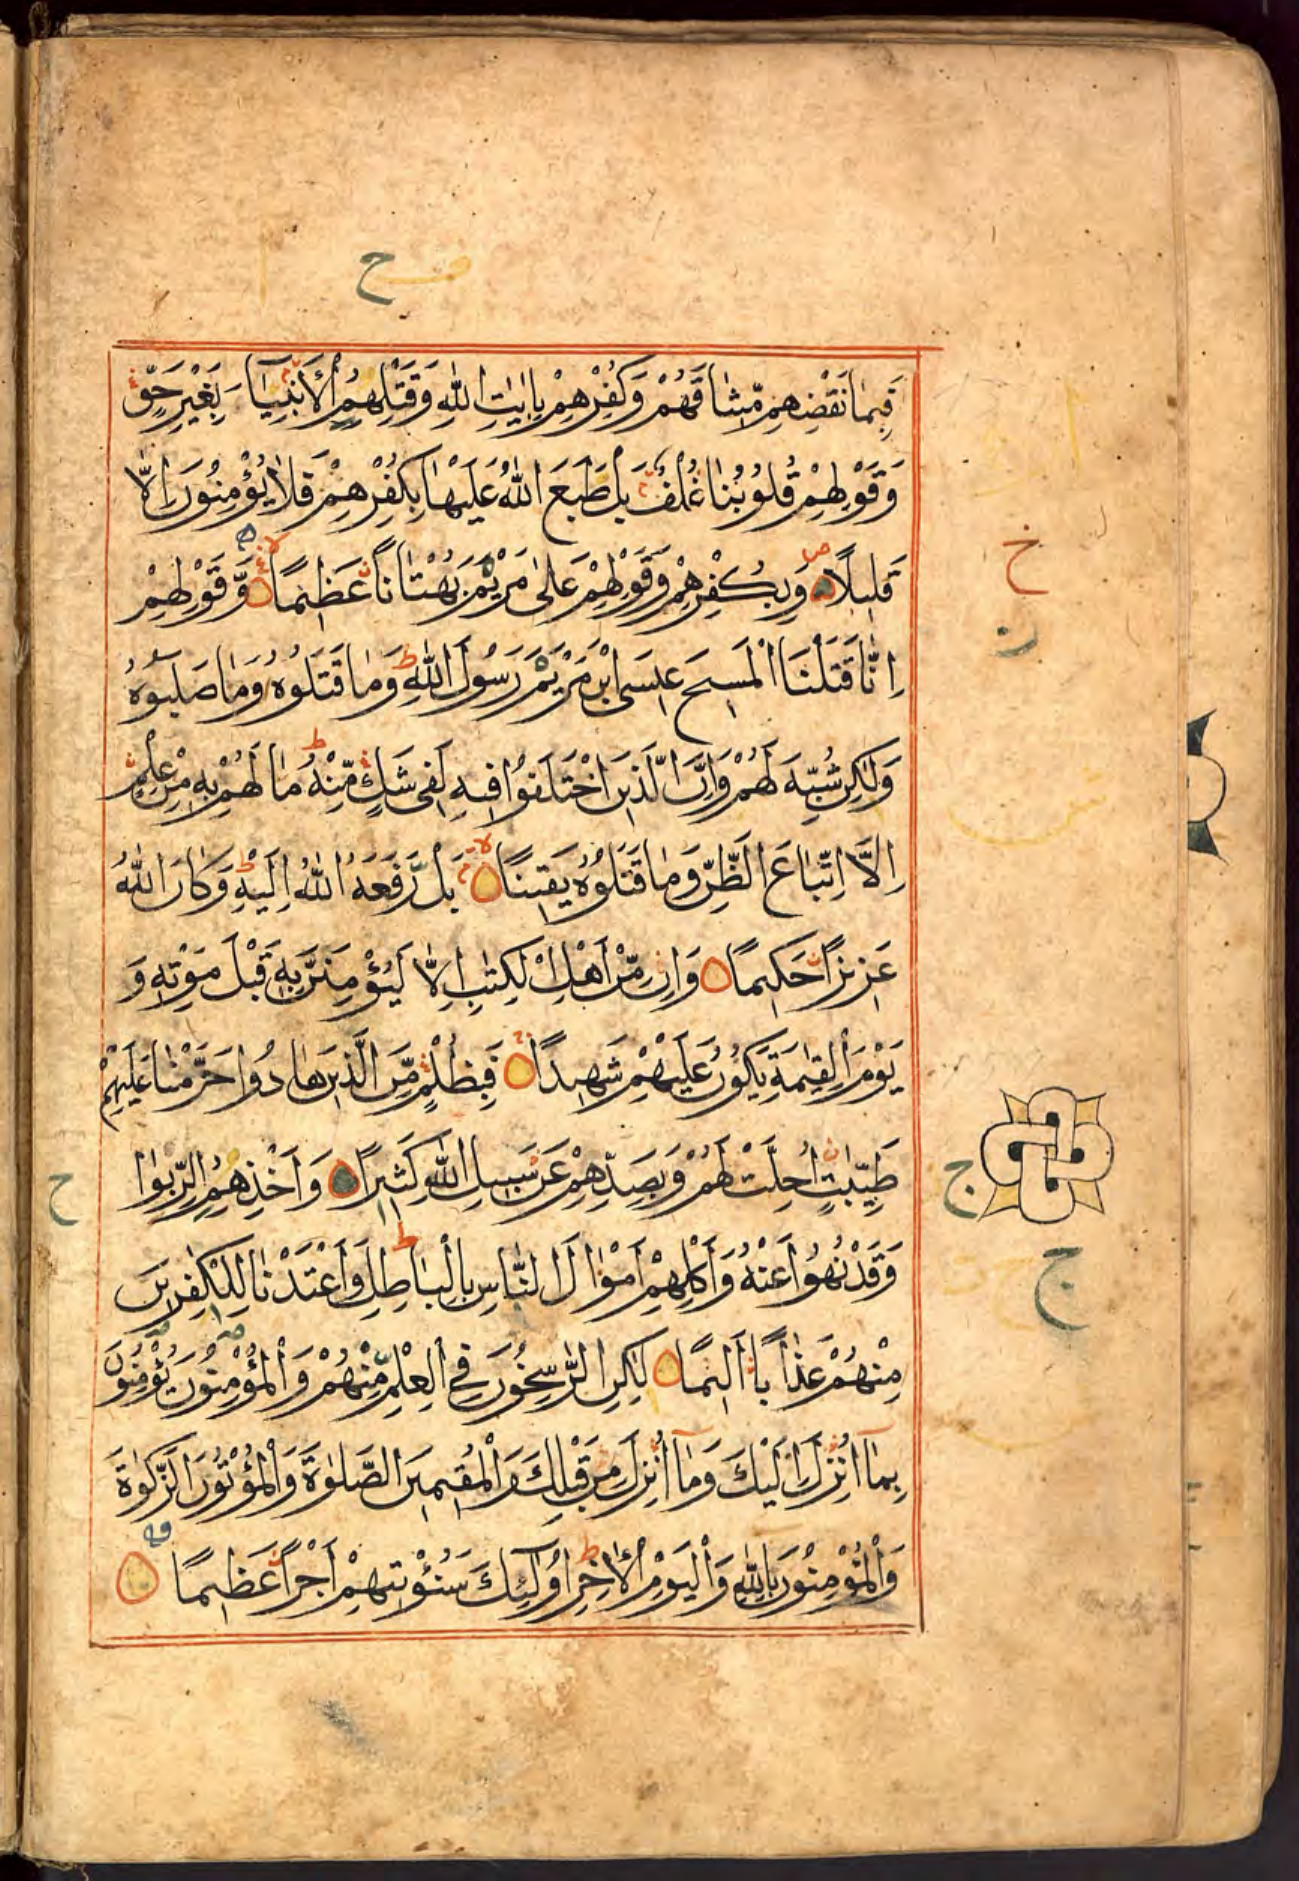 صح
فَبِمَا نَقْضِهِمْ مِّيْثَاقَهُمْ وَكُفْرِهِمْ بِاٰيٰتِ اللّٰهِ وَقَتْلِهِمُ الْاَنْۢبِيَآءَ بِغَيْرِ حَقٍّ
وَّقَوْلِهِمْ قُلُوْبُنَا غُلْفٌ بَلْ طَبَعَ اللّٰهُ عَلَيْهَا بِكُفْرِهِمْ فَلَا يُؤْمِنُوْنَ اِلَّا
قَلِيْلًا وَبِكُفْرِهِمْ وَقَوْلِهِمْ عَلٰى مَرْيَمَ بُهْتَانًا عَظِيْمًا وَّقَوْلِهِمْ
اِنَّا قَتَلْنَا الْمَسِيْحَ عِيْسَى ابْنَ مَرْيَمَ رَسُوْلَ اللّٰهِ ط وَمَا قَتَلُوْهُ وَمَا صَلَبُوْهُ
وَلٰكِنْ شُبِّهَ لَهُمْ وَاِنَّ الَّذِيْنَ اخْتَلَفُوْا فِيْهِ لَفِيْ شَكٍّ مِّنْهُ ط مَا لَهُمْ بِهٖ مِنْ عِلْمٍ
اِلَّا اتِّبَاعَ الظَّنِّ وَمَا قَتَلُوْهُ يَقِيْنًا لا بَلْ رَّفَعَهُ اللّٰهُ اِلَيْهِ وَكَانَ اللّٰهُ
عَزِيْزًا حَكِيْمًا وَاِنْ مِّنْ اَهْلِ الْكِتٰبِ اِلَّا لَيُؤْمِنَنَّ بِهٖ قَبْلَ مَوْتِهٖ وَ
يَوْمَ الْقِيٰمَةِ يَكُوْنُ عَلَيْهِمْ شَهِيْدًا فَبِظُلْمٍ مِّنَ الَّذِيْنَ هَادُوْا حَرَّمْنَا عَلَيْهِمْ
طَيِّبٰتٍ اُحِلَّتْ لَهُمْ وَبِصَدِّهِمْ عَنْ سَبِيْلِ اللّٰهِ كَثِيْرًا وَاَخْذِهِمُ الرِّبٰوا
وَقَدْ نُهُوْا عَنْهُ وَاَكْلِهِمْ اَمْوَالَ النَّاسِ بِالْبَاطِلِ ط وَاَعْتَدْنَا لِلْكٰفِرِيْنَ
مِنْهُمْ عَذَابًا اَلِيْمًا لٰكِنِ الرّٰسِخُوْنَ فِي الْعِلْمِ مِنْهُمْ وَالْمُؤْمِنُوْنَ يُؤْمِنُوْنَ
بِمَآ اُنْزِلَ اِلَيْكَ وَمَآ اُنْزِلَ مِنْ قَبْلِكَ وَالْمُقِيْمِيْنَ الصَّلٰوةَ وَالْمُؤْتُوْنَ الزَّكٰوةَ
وَالْمُؤْمِنُوْنَ بِاللّٰهِ وَالْيَوْمِ الْاٰخِرِ ط اُولٰٓئِكَ سَنُؤْتِيْهِمْ اَجْرًا عَظِيْمًا
خ
ح
ج
ج